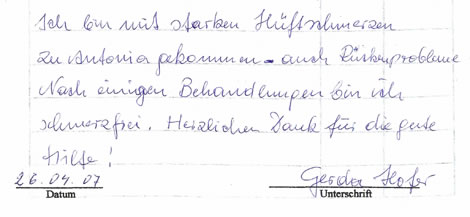 Ich bin mit starken Hüftschmerzen
zu Antonia gekommen - auch Rückenprobleme
Nach einigen Behandlungen bin ich
schmerzfrei. Herzlichen Dank für die gute
Hilfe!
26.04.07 Gerda Hofer
Datum Unterschrift